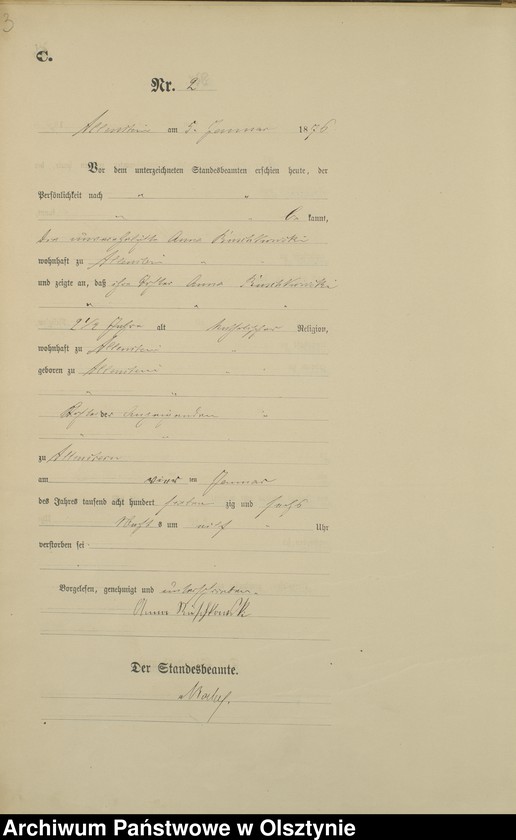 3
C.
Nr. 2
Allenstein am 5. Januar 1876
Vor dem unterzeichneten Standesbeamten erschien heute, der
Persönlichkeit nach
be kannt,
die unverehelichte Anna
wohnhaft zu Allenstein
und zeigte an, daß ihre Tochter Anna
2 1/2 Jahre alt katholischer Religion,
wohnhaft zu Allenstein
geboren zu Allenstein
Tochter der Anzeigenden
zu Allenstein
am vier ten Januar
des Jahres tausend acht hundert sieben zig und sechs
Nachts um elf Uhr
verstorben sei
Vorgelesen, genehmigt und unterschrieben.
Anna
Der Standesbeamte.